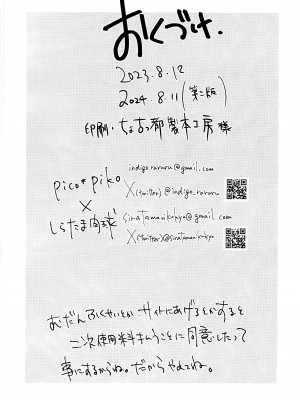 おくづけ.
2023.8.12
2024.8.11(第二版)
印刷・ちょ古っ都製本工房様
pico*piko
indigo_raruru@gmail.com
X(twitter)@indigo_raruru
×
しらたま肉球
siratamanikukyu@gmail.com
X(twitter)@siratamanikukyu
むだんふくせいとかサイトにあげるとかすると
二次使用料はらうことに同意したって
事にするからね。だからやめてね。